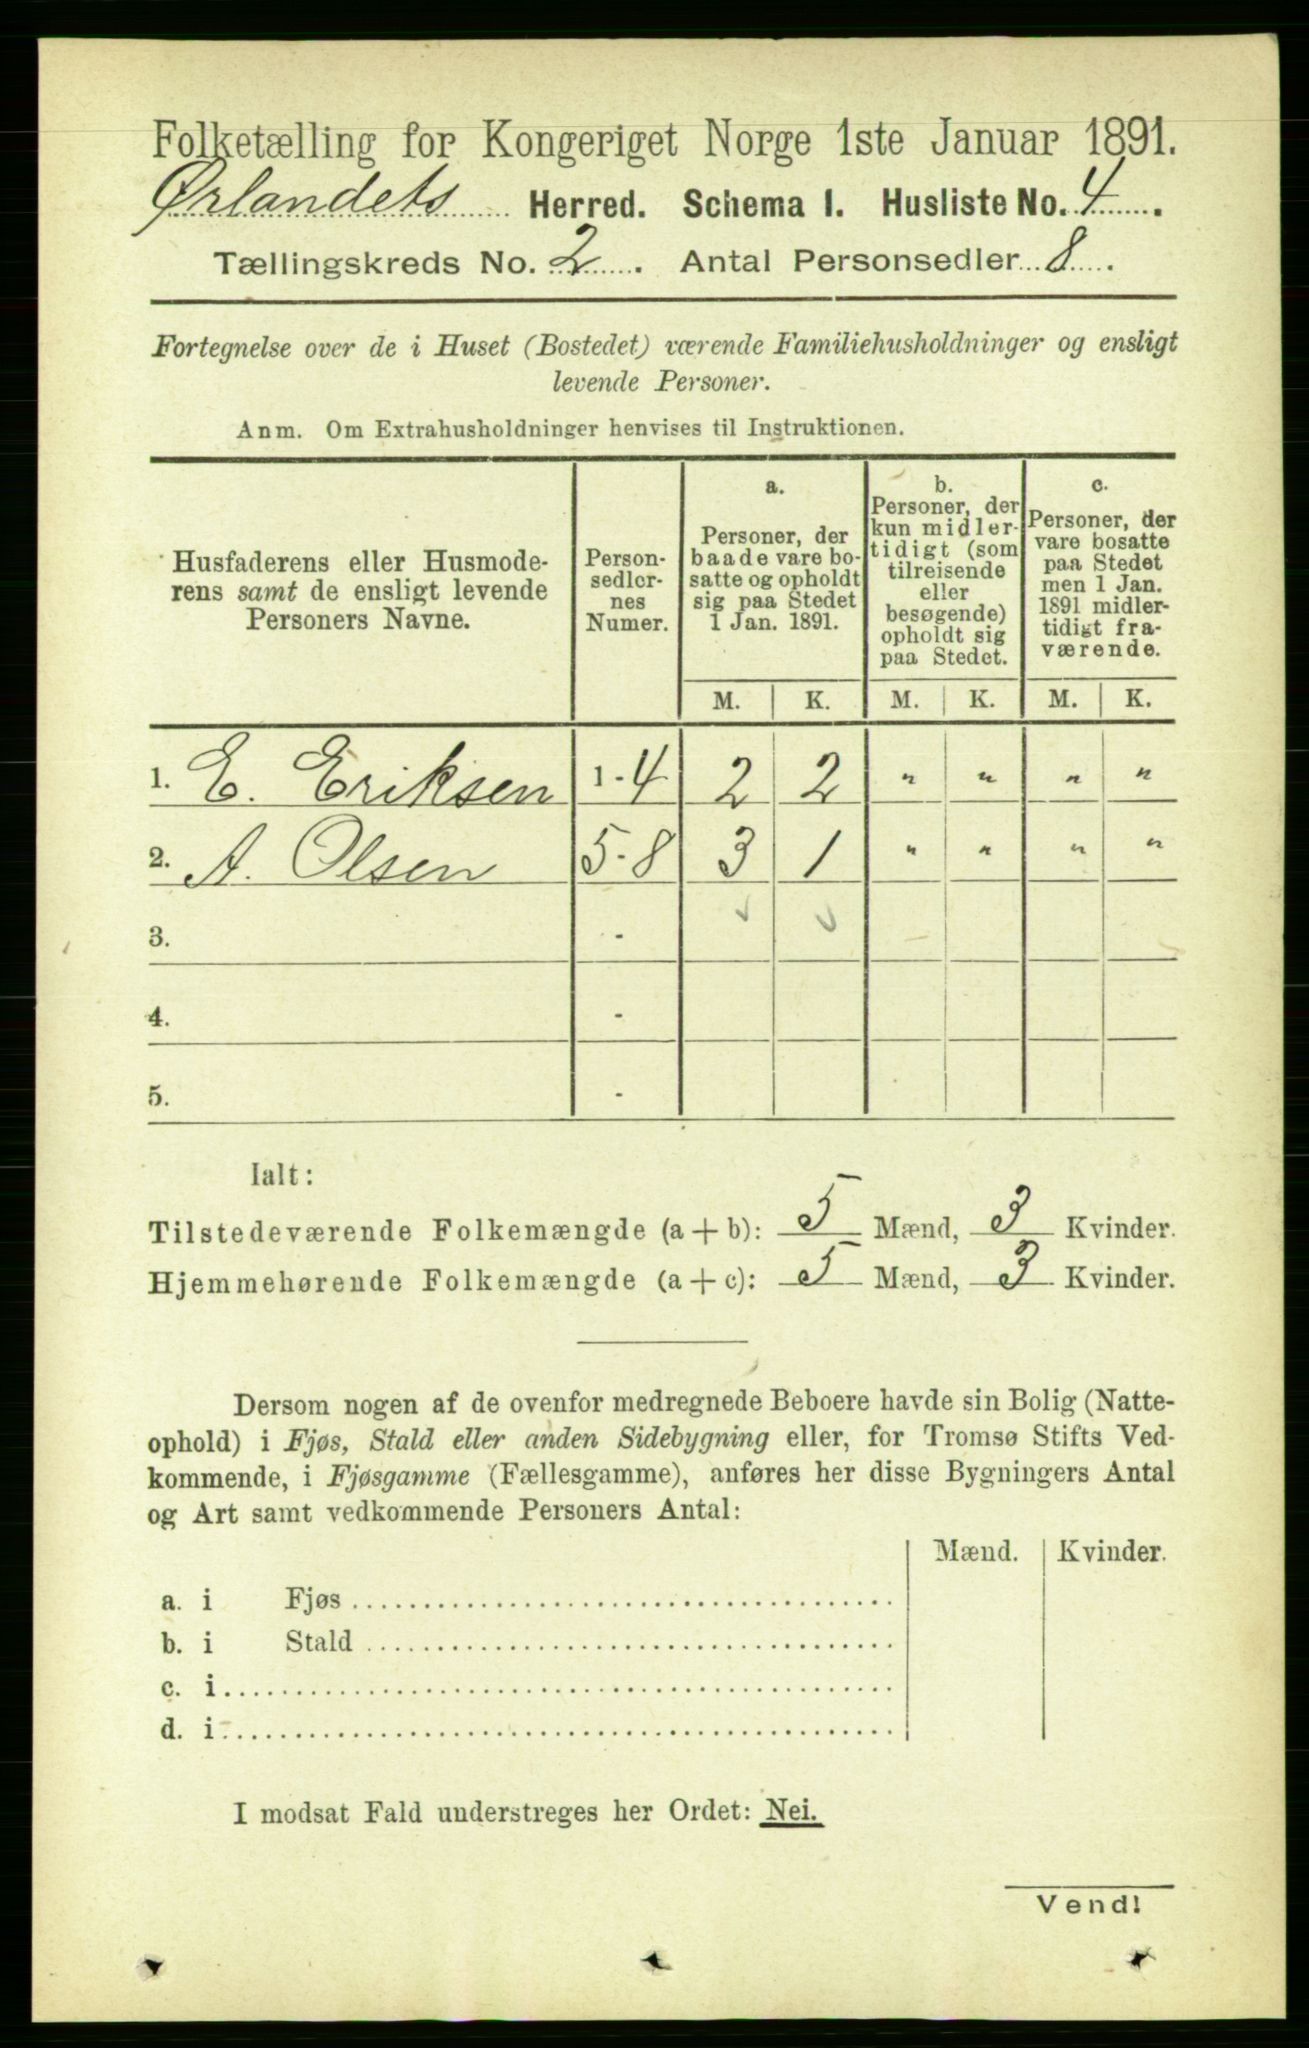 Folketælling for Kongeriget Norge 1ste Januar 1891.
Ørlandets Herred. Schema I. Husliste No. 4.
Tællingskreds No. 2. Antal Personsedler 8.
Fortegnelse over de i Huset (Bostedet) værende Familiehusholdninger og ensligt
levende Personer.
Anm. Om Extrahusholdninger henvises til Instruktionen.
Husfaderens eller Husmode-
rens samt de ensligt levende
Personers Navne.
Person-
sedler-
nes
Numer.
a.
Personer, der
baade vare bo-
satte og opholdt
sig paa Stedet
1 Jan. 1891.
b.
Personer, der
kun midler-
tidigt (som
tilreisende
eller
besøgende)
opholdt sig
paa Stedet.
c.
Personer, der
vare bosatte
paa Stedet
men 1 Jan.
1891 midler-
tidigt fra-
værende.
M. K. M. K. M. K.
1. E. Eriksen 1-4 2 2 " " " "
2. A. Olsen 5-8 3 1 " " " "
3. -
4. -
5. -
Ialt:
Tilstedeværende Folkemængde (a + b): 5 Mænd, 3 Kvinder.
Hjemmehørende Folkemængde (a + c): 5 Mænd, 3 Kvinder.
Dersom nogen af de ovenfor medregnede Beboere havde sin Bolig (Natte-
ophold) i Fjøs, Stald eller anden Sidebygning eller, for Tromsø Stifts Ved-
kommende, i Fjøsgamme (Fællesgamme), anføres her disse Bygningers Antal
og Art samt vedkommende Personers Antal:
Mænd. Kvinder.
a. i Fjøs
b. i Stald
c. i
d. i
I modsat Fald understreges her Ordet: Nei.
Vend!